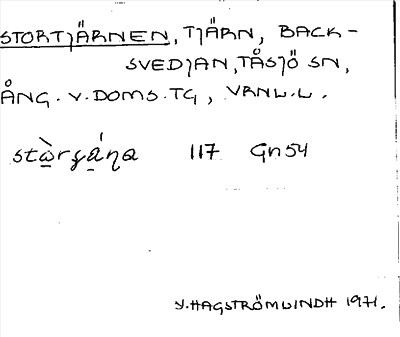 STORTJÄRNEN, TJÄRN, BACK-
SVEDJAN, TÅSJÖ SN,
ÅNG. V. DOMS. TG, VRNL.L.
117 Gn 54
Y. HAGSTRÖM LINDH 1971.